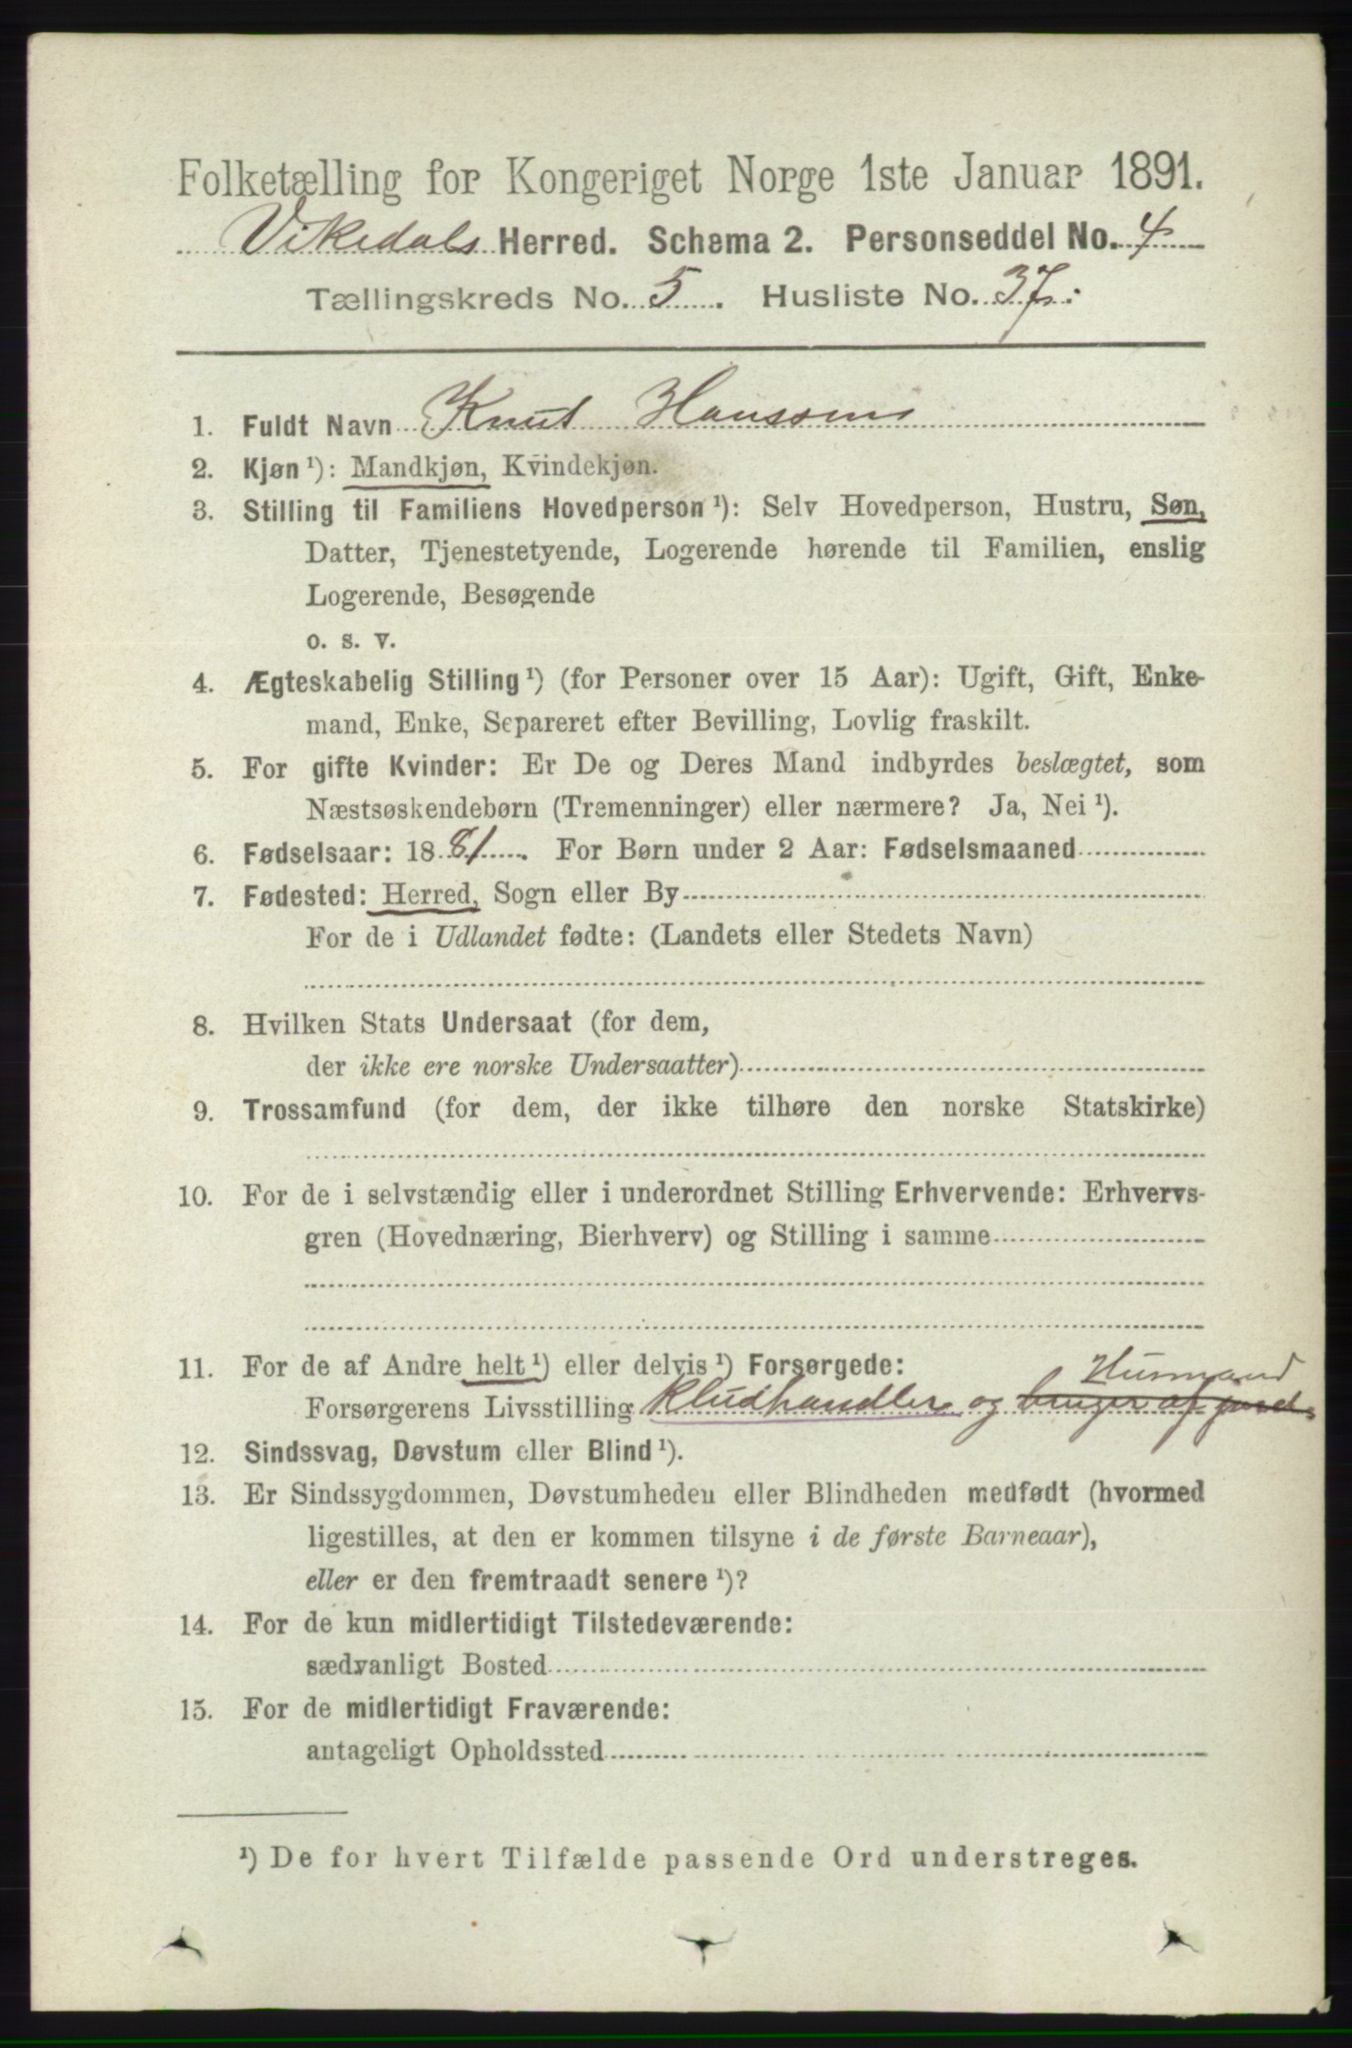 Folketælling for Kongeriget Norge 1ste Januar 1891.
Vikedals Herred. Schema 2. Personseddel No. 4
Tællingskreds No. 5. Husliste No. 37.
1. Fuldt Navn Knut Hanssen
2. Kjøn ¹): Mandkjøn, Kvindekjøn.
3. Stilling til Familiens Hovedperson ¹): Selv Hovedperson, Hustru, Søn,
Datter, Tjenestetyende, Logerende hørende til Familien, enslig
Logerende, Besøgende
o. s. v.
4. Ægteskabelig Stilling ¹) (for Personer over 15 Aar): Ugift, Gift, Enke-
mand, Enke, Separeret efter Bevilling, Lovlig fraskilt.
5. For gifte Kvinder: Er De og Deres Mand indbyrdes beslægtet, som
Næstsøskendebørn (Tremenninger) eller nærmere? Ja, Nei ¹).
6. Fødselsaar: 1881. For Børn under 2 Aar: Fødselsmaaned
7. Fødested: Herred, Sogn eller By
For de i Udlandet fødte: (Landets eller Stedets Navn)
8. Hvilken Stats Undersaat (for dem,
der ikke ere norske Undersaatter)
9. Trossamfund (for dem, der ikke tilhøre den norske Statskirke)
10. For de i selvstændig eller i underordnet Stilling Erhvervende: Erhvervs-
gren (Hovednæring, Bierhverv) og Stilling i samme
11. For de af Andre helt ¹) eller delvis ¹) Forsørgede:
Husmand
Forsørgerens Livsstilling Kludhandler og bruger af gaard.
12. Sindssvag, Døvstum eller Blind ¹).
13. Er Sindssygdommen, Døvstumheden eller Blindheden medfødt (hvormed
ligestilles, at den er kommen tilsyne i de første Barneaar),
eller er den fremtraadt senere ¹)?
14. For de kun midlertidigt Tilstedeværende:
sædvanligt Bosted
15. For de midlertidigt Fraværende:
antageligt Opholdssted
¹) De for hvert Tilfælde passende Ord understreges.